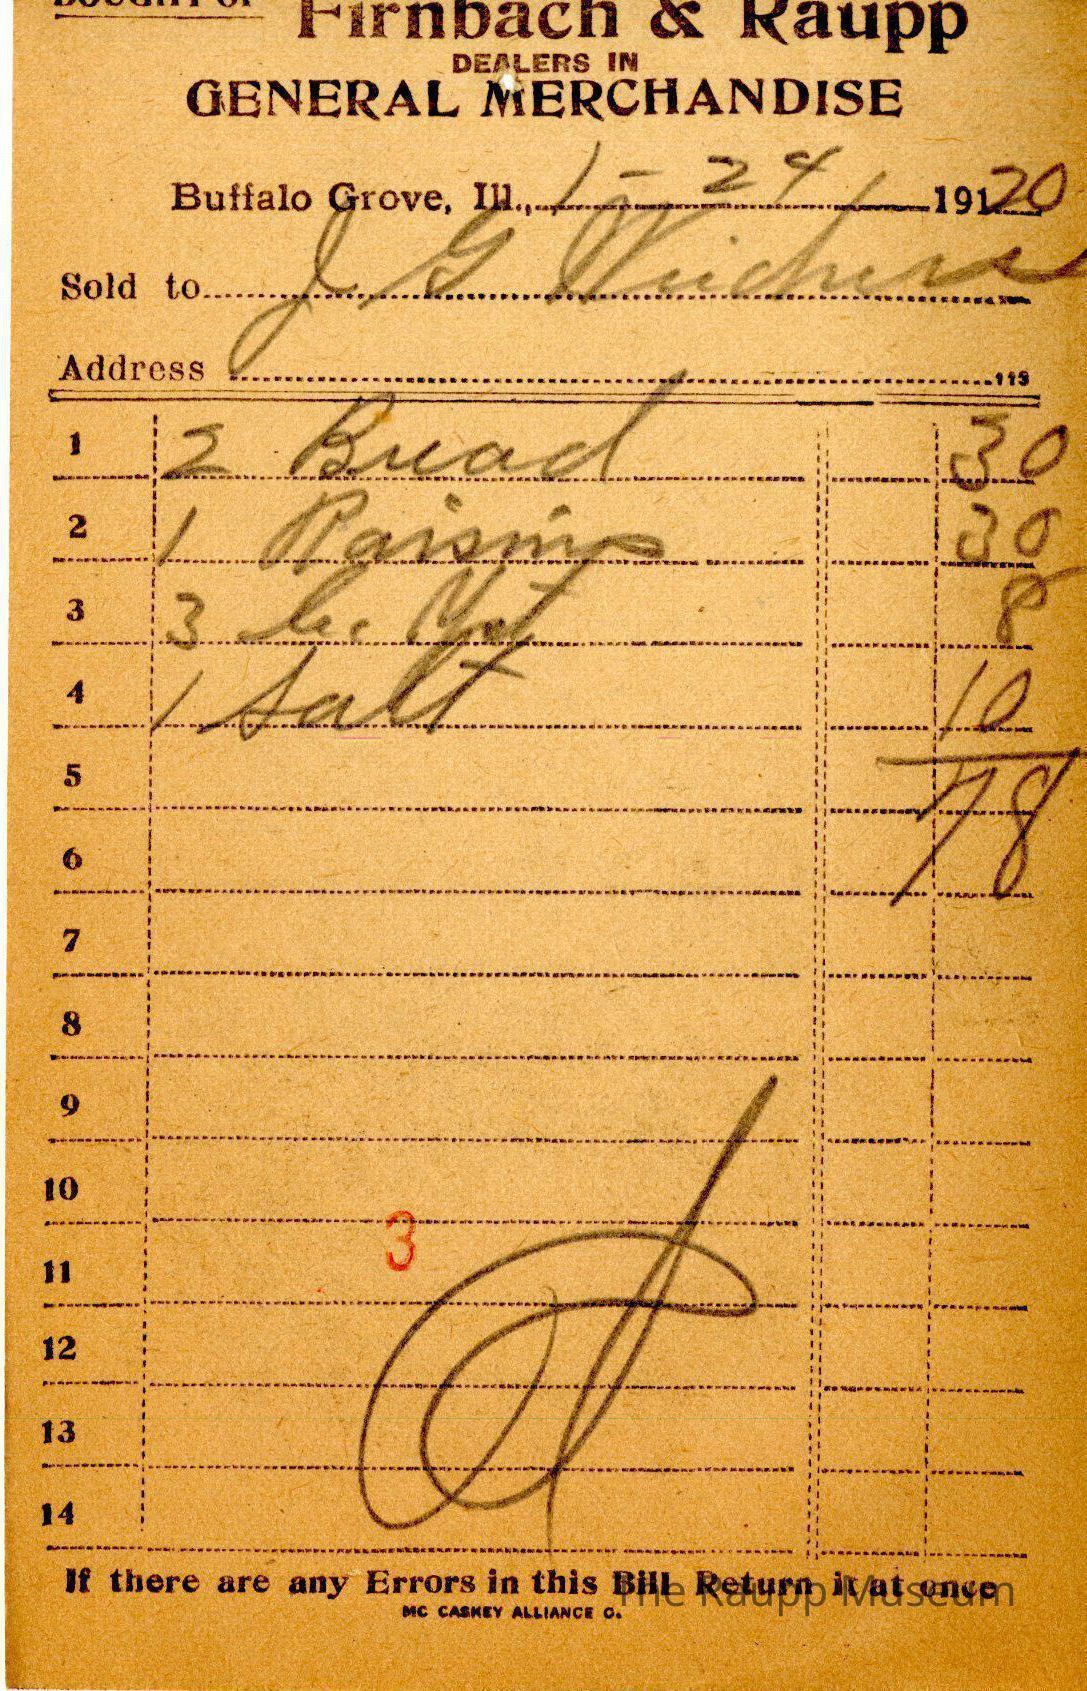 BOUGHT OF
Firnbach & Raupp
DEALERS IN
GENERAL MERCHANDISE
Buffalo Grove, Ill., 1-24 191 20
Sold to J G
Address
1 2 Bread 30
2 1 Raisins 30
3 3 8
4 1 Salt 10
5 78
6
7
8
9
10
3
11
12
13
14
If there are any Errors in this Bill Return it at once
MC CASKEY ALLIANCE O.
The Raupp Museum